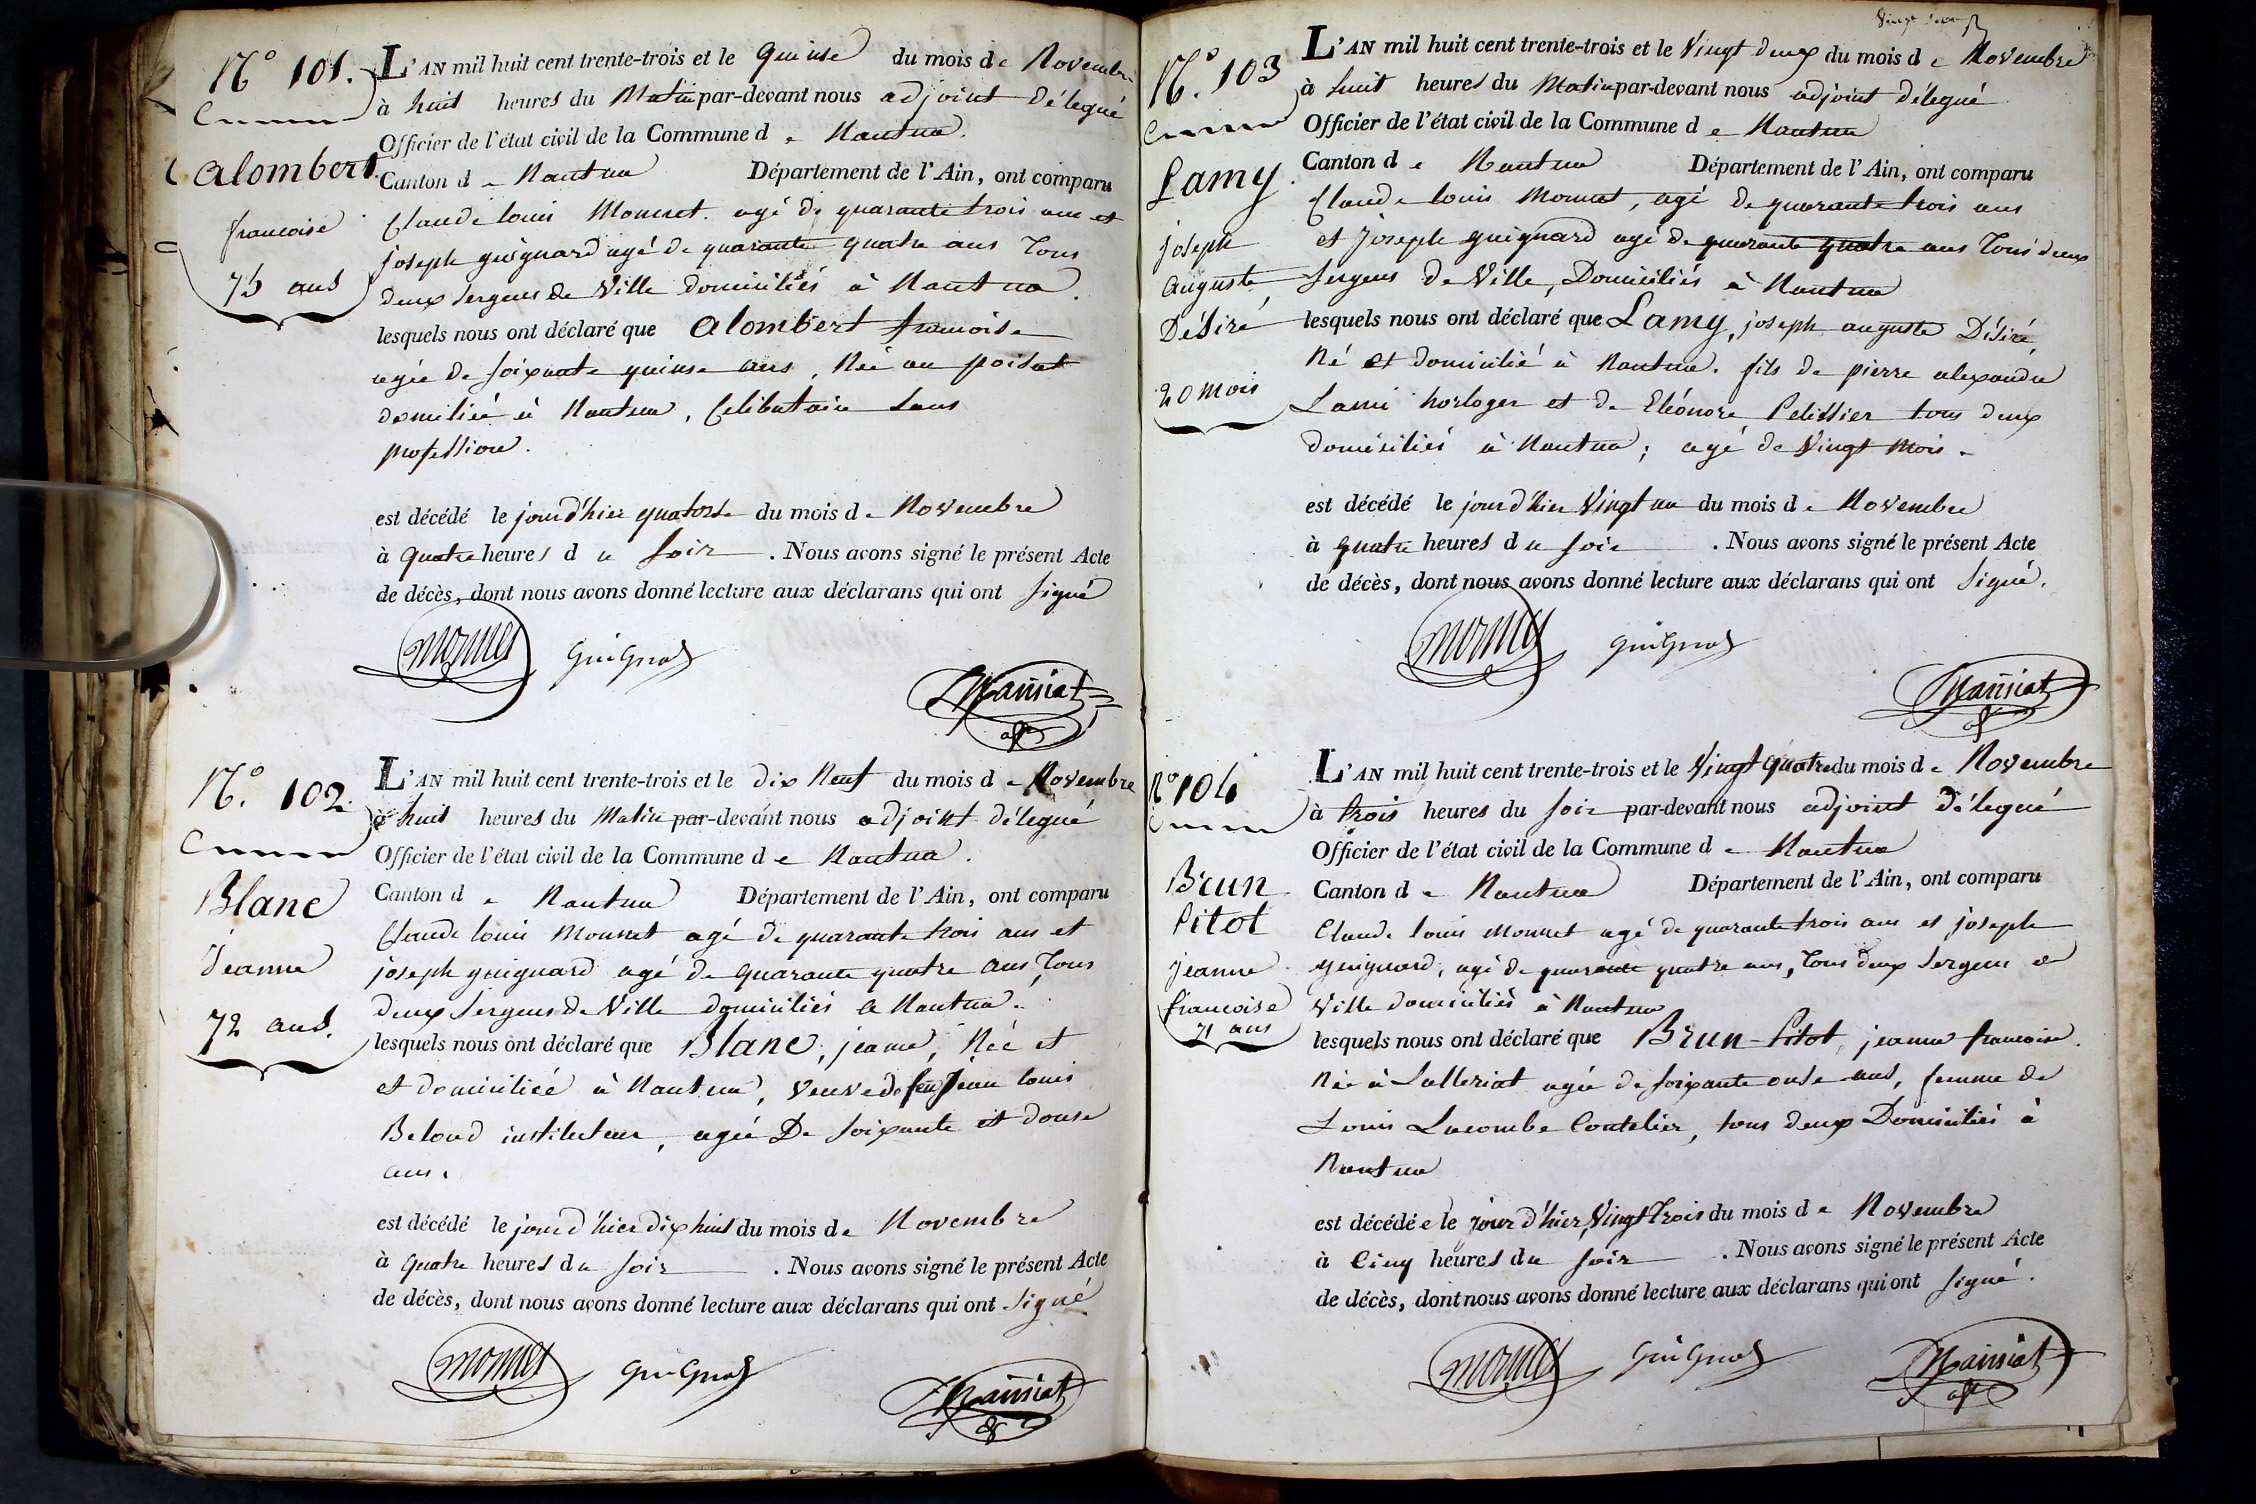 N.° 101.
Alombert
françoise
75 ans
L'AN mil huit cent trente-trois et le Quinse du mois de Novembre
à huit heures du Matin par-devant nous adjoint délegué
Officier de l'état civil de la Commune de Nantua.
Canton de Nantua Département de l'Ain, ont comparu
Claude louis Monnet. agé de quarante trois ans et
joseph guignard agé de quarante quatre ans Tous
deux Sergens de Ville domiciliés à Nantua.
lesquels nous ont déclaré que Alombert françoise
agée de soixante quinse ans, Née au poisat
domiliée à Nantua, Celibataire sans
profession.
est décédé le jour d'hier quatorse du mois de Novembre
à quatre heures du soir. Nous avons signé le présent Acte
de décès, dont nous avons donné lecture aux déclarans qui ont signé
monnet guignard Mansiat
N.° 102.
Blanc
jeanne
72 ans.
L'AN mil huit cent trente-trois et le dix Neuf du mois de Novembre
à huit heures du Matin par-devant nous adjoint délegué
Officier de l'état civil de la Commune de Nantua.
Canton de Nantua Département de l'Ain, ont comparu
Claude louis Monnet agé de quarante trois ans et
joseph guignard agé de quarante quatre ans, Tous
deux Sergens de Ville domiciliés à Nantua.
lesquels nous ont déclaré que Blanc, jeanne, Née et
et domiciliée à Nantua, Veuve de feu Jean louis
Beloud instituteur, agée De soixante et douse
ans.
est décédé le jour d'hier dix huit du mois de Novembre
à quatre heures du soir. Nous avons signé le présent Acte
de décès, dont nous avons donné lecture aux déclarans qui ont signé
monnet guignard Mansiat
N.° 103
Lamy
joseph
Auguste
Désiré
20 mois
L'AN mil huit cent trente-trois et le Vingt deux du mois de Novembre
à huit heures du Matin par-devant nous adjoint délegué
Officier de l'état civil de la Commune de Nantua
Canton de Nantua Département de l'Ain, ont comparu
Claude louis Monnet, agé de quarante trois ans
et Joseph guignard agé de quarante quatre ans Tous deux
Sergens de Ville, Domiciliés à Nantua
lesquels nous ont déclaré que Lamy, joseph auguste Désiré,
Né et domicilié à Nantua. fils de pierre alexandre
Lami horloger et de Eléonore Pelissier tous deux
domiciliés à Nantua; agé de Vingt Mois.
est décédé le jour d'hier Vingt un du mois de Novembre
à quatre heures du soir. Nous avons signé le présent Acte
de décès, dont nous avons donné lecture aux déclarans qui ont signé.
monnet guignard Mansiat
N° 104
Brun
Pitot
Jeanne
françoise
71 ans
L'AN mil huit cent trente-trois et le Vingt quatre du mois de Novembre
à trois heures du soir par-devant nous adjoint délegué
Officier de l'état civil de la Commune de Nantua
Canton de Nantua Département de l'Ain, ont comparu
Claude louis Monnet agé de quarante trois ans et joseph
guignard, agé de quarante quatre ans, Tous deux Sergens de
Ville domiciliés à Nantua
lesquels nous ont déclaré que Brun-Pitot, jeanne françoise.
Née à Lalleriat agée de soixante onse ans, femme de
Louis Lacombe Coutelier, tous deux Domiciliés à
Nantua
est décédée le jour d'hier Vingt trois du mois de Novembre
à Cinq heures du soir. Nous avons signé le présent Acte
de décès, dont nous avons donné lecture aux déclarans qui ont signé.
monnet guignard Mansiat